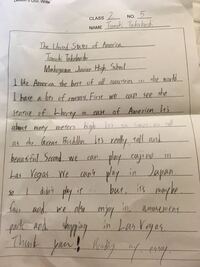 CLASS 2 NO. 5
NAME
The United States of America
Junior High School
I like America the best of all countries in the world.
I have a lots of reasons. First we can see the
statue of Liberty in case of America Its
about ninty meters high
as the Great Buddha. Its really tall and
beautiful Second we can play cajino in
Las Vegas We can't play in Japan
so I didn't play it but, its maybe
fun and we also enjoy in amusement
park and shopping in Las Vegas
Thank you! Reading my essay.